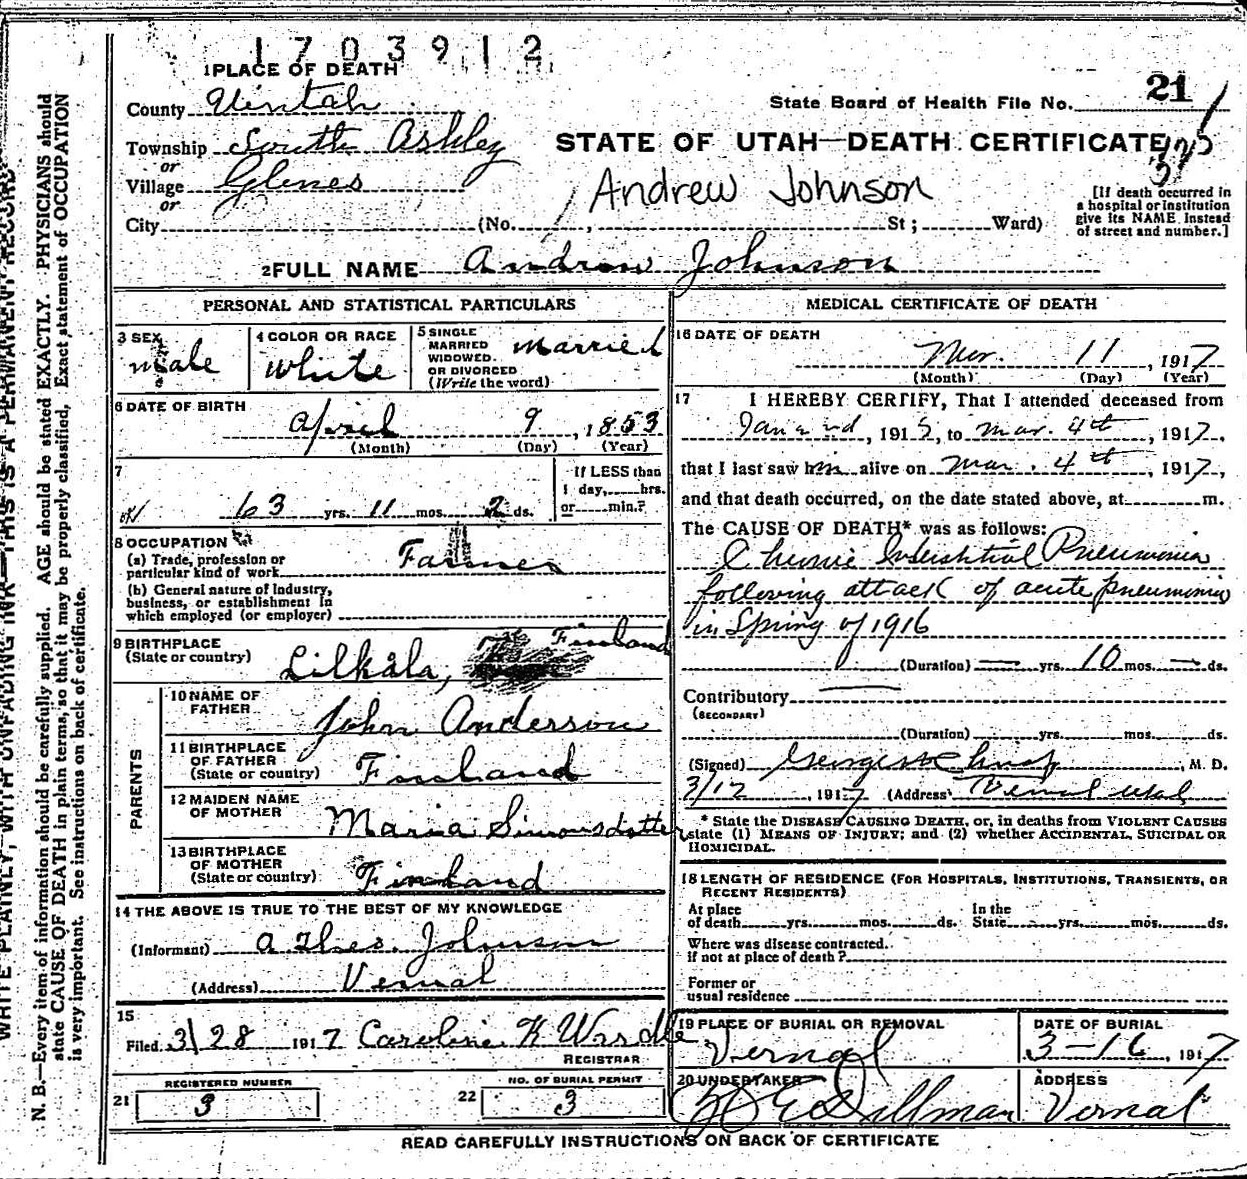 1703912
1 PLACE OF DEATH
County Uintah
State Board of Health File No. 21
Township South Ashley
STATE OF UTAH—DEATH CERTIFICATE
or
Village Glines
or
Andrew Johnson
[If death occurred in
a hospital or institution
give its NAME instead
of street and number.]
City (No. , St; Ward)
2 FULL NAME Andrew Johnson
PERSONAL AND STATISTICAL PARTICULARS
3 SEX
male
4 COLOR OR RACE
White
5 SINGLE
MARRIED
WIDOWED.
OR DIVORCED
(Write the word)
Married
6 DATE OF BIRTH
April 9, 1853
(Month) (Day) (Year)
7
63 yrs. 11 mos. 2 ds.
If LESS than
1 day, hrs.
or min.?
8 OCCUPATION
(a) Trade, profession or
particular kind of work Farmer
(b) General nature of Industry,
business, or establishment in
which employed (or employer)
9 BIRTHPLACE
(State or country) Lilkåla, Finland
PARENTS
10 NAME OF
FATHER John Anderson
11 BIRTHPLACE
OF FATHER
(State or country) Finland
12 MAIDEN NAME
OF MOTHER Maria Simonsdotter
13 BIRTHPLACE
OF MOTHER
(State or country) Finland
14 THE ABOVE IS TRUE TO THE BEST OF MY KNOWLEDGE
(Informant) A Theo. Johnson
(Address) Vernal
15
Filed 3/28 1917 Caroline K Wardle
REGISTRAR
REGISTERED NUMBER
21 3
NO. OF BURIAL PERMIT
22 3
MEDICAL CERTIFICATE OF DEATH
16 DATE OF DEATH
Mar. 11, 1917
(Month) (Day) (Year)
17 I HEREBY CERTIFY, That I attended deceased from
Jan 2nd, 1915, to Mar. 4th, 1917,
that I last saw him alive on Mar. 4th, 1917,
and that death occurred, on the date stated above, at m.
The CAUSE OF DEATH* was as follows:
Chronic Interstitial Pneumonia
following attack of acute pneumonia
in Spring of 1916
(Duration) — yrs. 10 mos. — ds.
Contributory
(SECONDARY)
(Duration) yrs. mos. ds.
(Signed) George , M. D.
3/12, 1917 (Address) Vernal Utah
* State the DISEASE CAUSING DEATH, or, in deaths from VIOLENT CAUSES
state (1) MEANS OF INJURY; and (2) whether ACCIDENTAL, SUICIDAL OR
HOMICIDAL.
18 LENGTH OF RESIDENCE (FOR HOSPITALS, INSTITUTIONS, TRANSIENTS, OR
RECENT RESIDENTS)
At place
of death yrs. mos. ds.
In the
State yrs. mos. ds.
Where was disease contracted.
If not at place of death?
Former or
usual residence
19 PLACE OF BURIAL OR REMOVAL
Vernal
DATE OF BURIAL
3-16, 1917
20 UNDERTAKER
Dillman
ADDRESS
Vernal
READ CAREFULLY INSTRUCTIONS ON BACK OF CERTIFICATE
WRITE PLAINLY, WITH UNFADING INK—THIS IS A PERMANENT RECORD.
N. B.—Every item of information should be carefully supplied. AGE should be stated EXACTLY. PHYSICIANS should
state CAUSE OF DEATH in plain terms, so that it may be properly classified. Exact statement of OCCUPATION
is very important. See instructions on back of certificate.